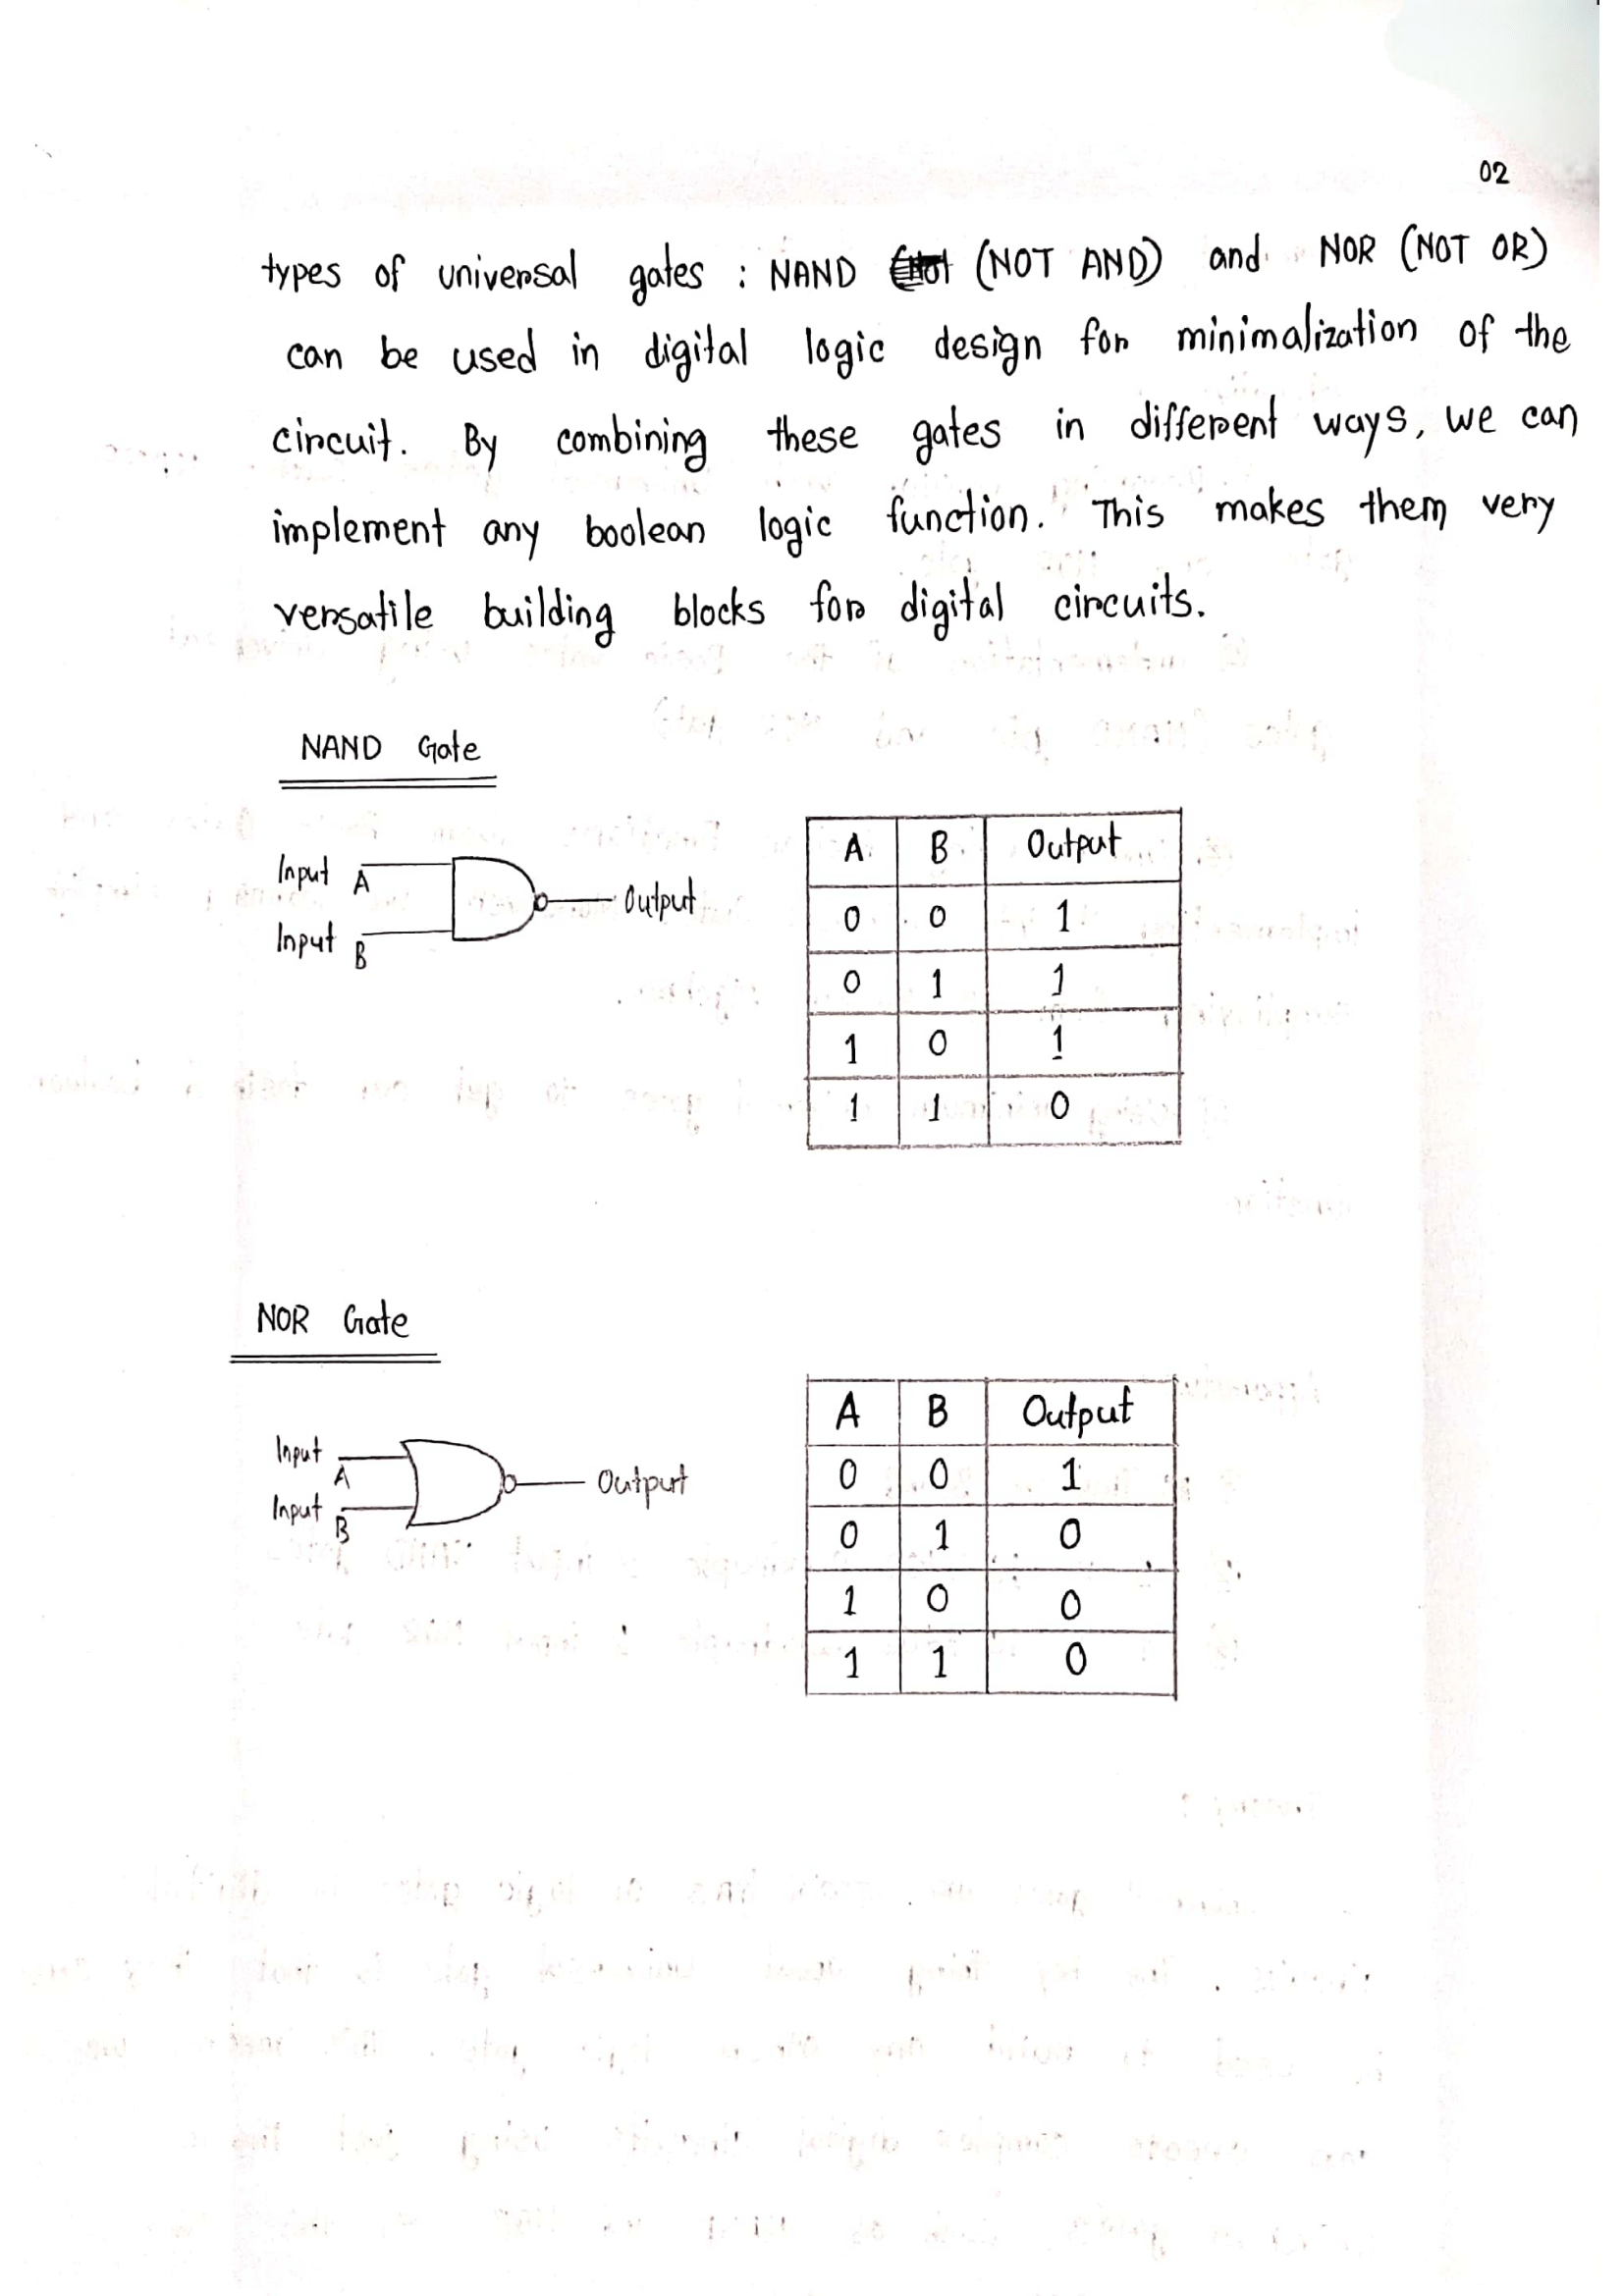 02
types of universal gates : NAND (NOT AND) and NOR (NOT OR)
can be used in digital logic design for minimalization of the
circuit. By combining these gates in different ways, we can
implement any boolean logic function. This makes them very
versatile building blocks for digital circuits.
NAND Gate
Input A
Input B
Output
A B Output
0 0 1
0 1 1
1 0 1
1 1 0
NOR Gate
Input A
Input B
Output
A B Output
0 0 1
0 1 0
1 0 0
1 1 0